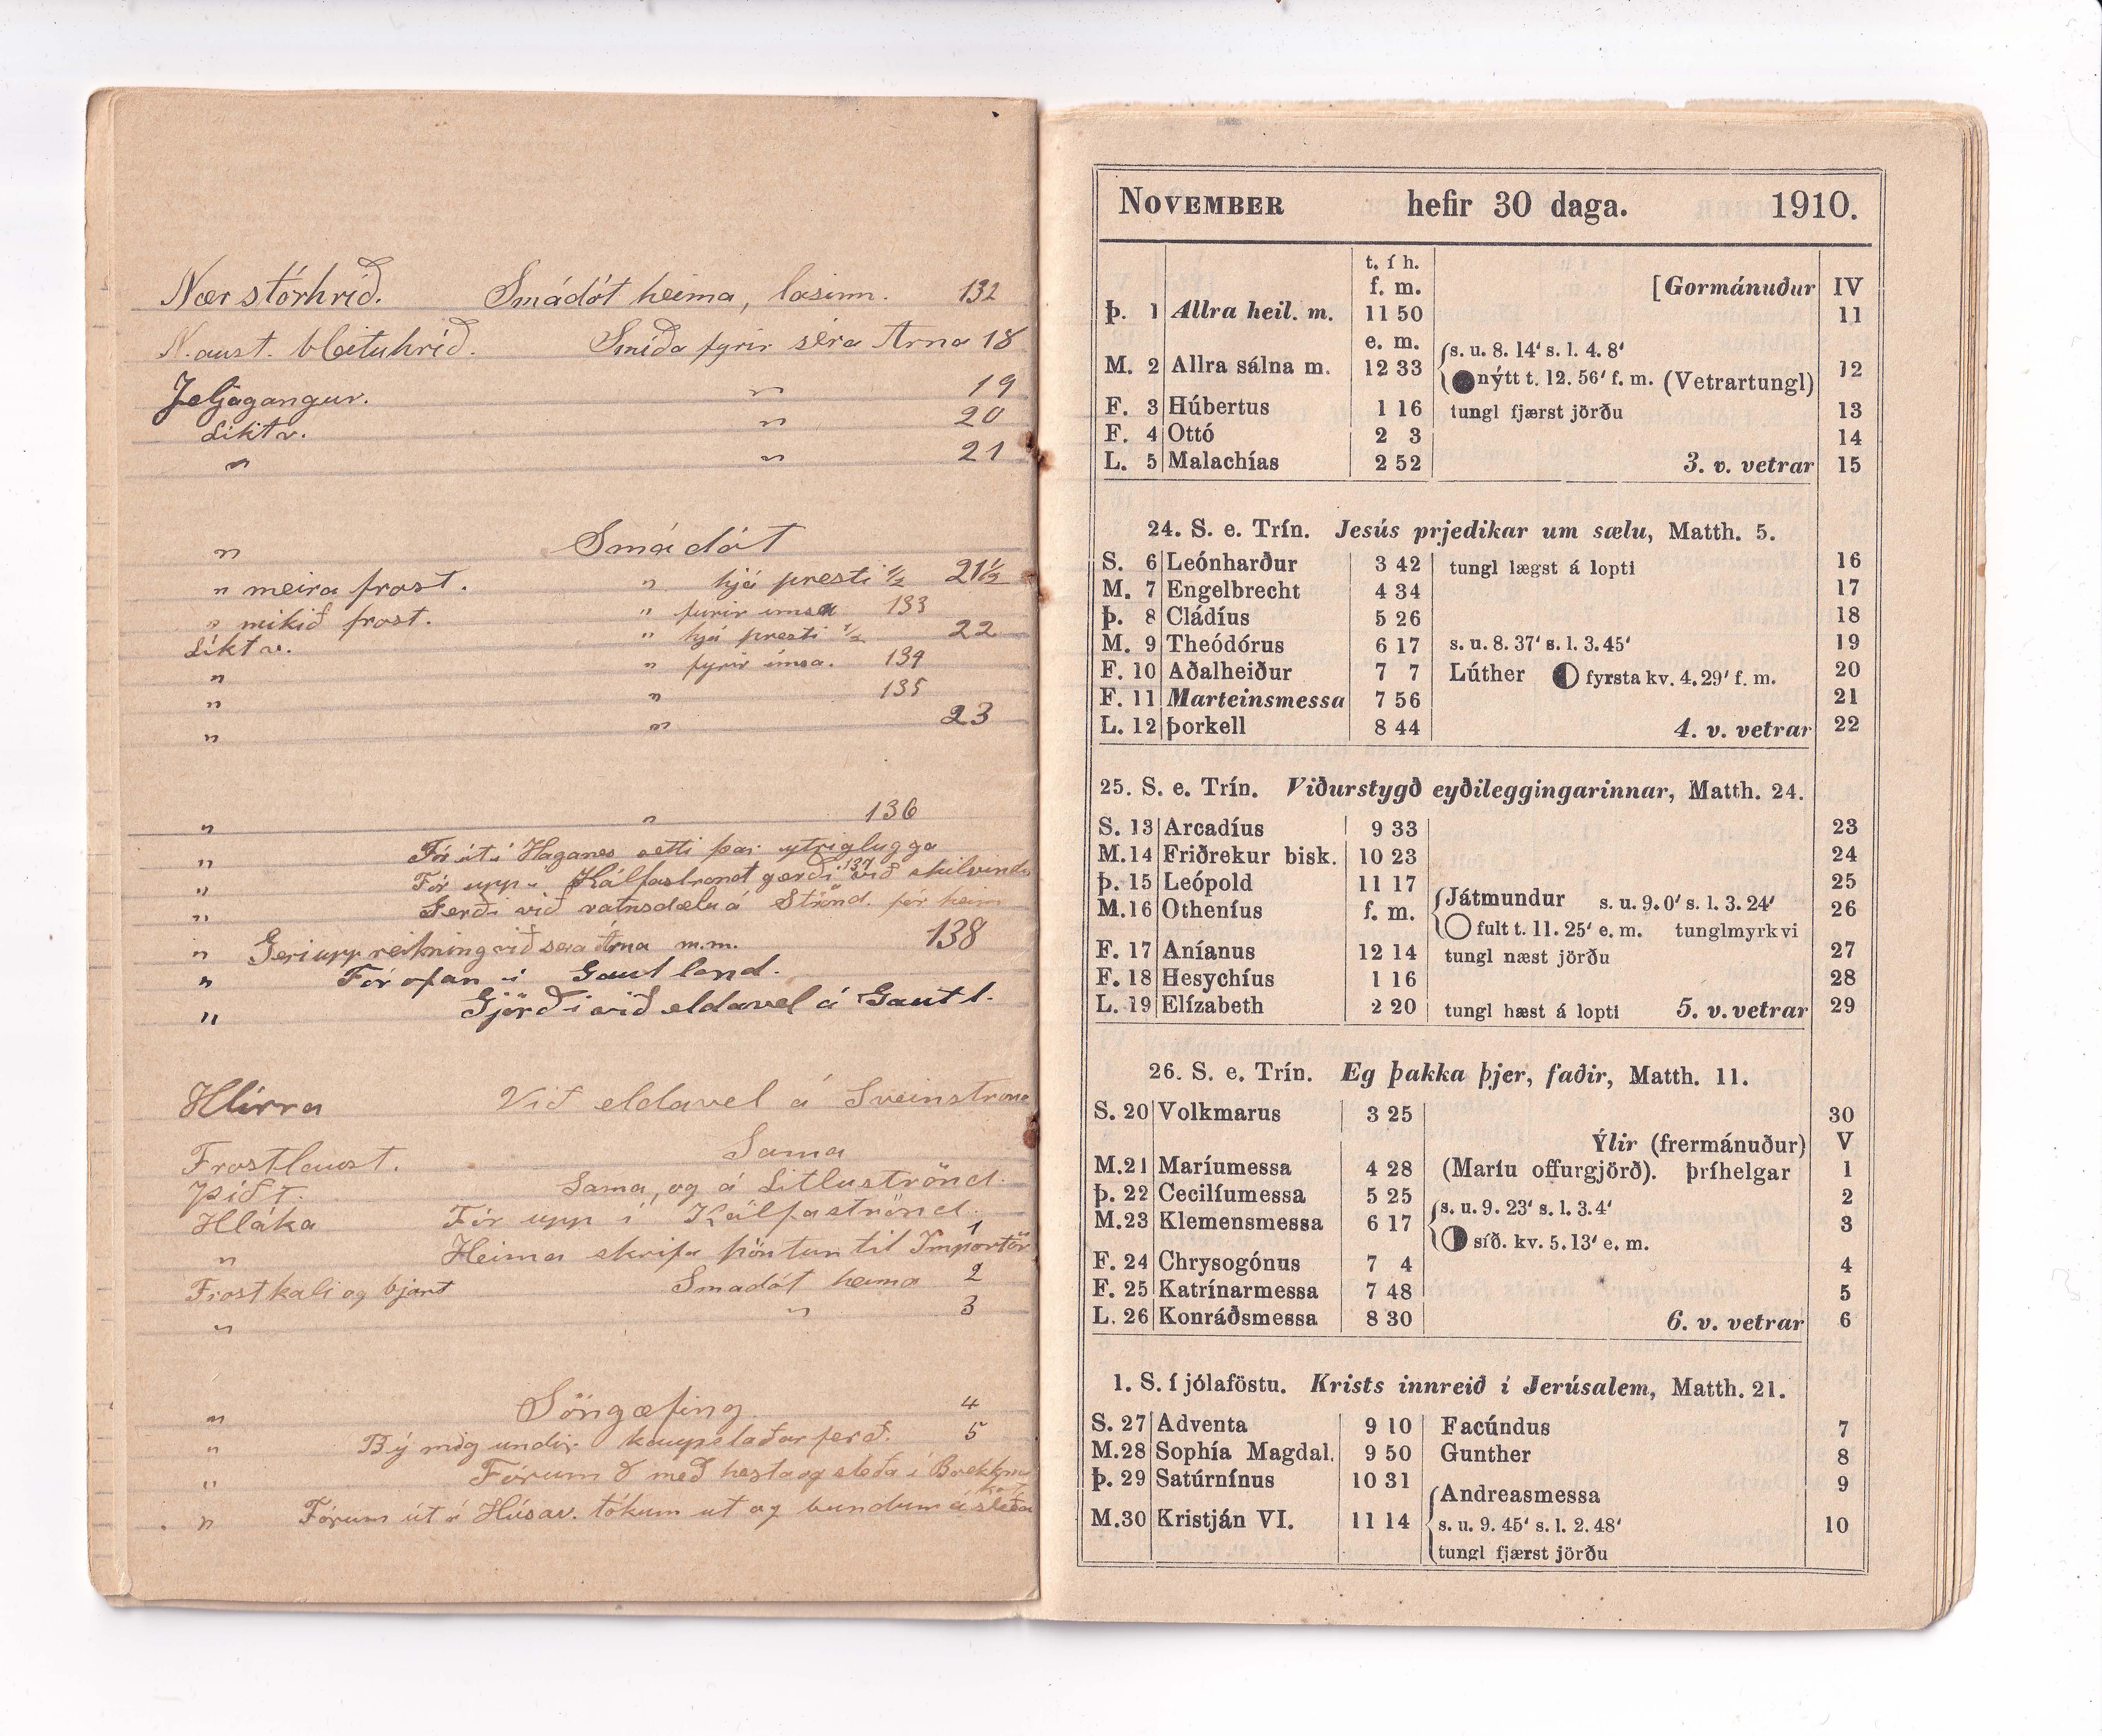 Nær stórhríð. Smádót heima, lasinn. 132
N.aust. bleituhríð. Smíða fyrir séra Árna 18
Jeljagangur. " 19
Líkt v. " 20
" " 21
" Smádót
" meira frost. " hjá presti 1/2 21 1/2
" mikið frost. " furir ímsa 133
Líkt v. " hjá presti 1/2 22
" " fyrir ímsa. 134
" " 135
" " 23
" " 136
" Fór út í Haganes setti þar ytriglugga
" Fór upp í Kálfastrond gerði við skilvindu 137
" Gerði við vatnsdælu á Strönd. fór heim
" Geri upp reikning við séra Árna m.m. 138
" Fór ofan í Gautlond.
" Gjörði við eldavel á Gautl.
Hlírra Við eldavel á Sveinstrond
Frostlaust. Sama
Þíðt. Sama, og á Litluströnd.
Hláka Fór upp í Kálfaströnd.
" Heima skrifa pöntun til Importör 1
Frostkali og bjart Smadót heima 2
" " 3
" Söngæfing 4
" Bý mig undir kaupstaðarferð. 5
" Fórum með hesta og sleða í
" Fórum út á Húsav. tókum ut og bundum á sleða
NOVEMBER hefir 30 daga. 1910.
t. í h. f. m. [Gormánuður IV
Þ. 1 Allra heil. m. 11 50 11
e. m.
M. 2 Allra sálna m. 12 33 s. u. 8. 14' s. l. 4. 8' 12
nýtt t. 12. 56' f. m. (Vetrartungl)
F. 3 Húbertus 1 16 tungl fjærst jörðu 13
F. 4 Ottó 2 3 14
L. 5 Malachías 2 52 3. v. vetrar 15
24. S. e. Trín. Jesús prjedikar um sælu, Matth. 5.
S. 6 Leónharður 3 42 tungl lægst á lopti 16
M. 7 Engelbrecht 4 34 17
Þ. 8 Cládíus 5 26 18
M. 9 Theódórus 6 17 s. u. 8. 37' s. l. 3. 45' 19
F. 10 Aðalheiður 7 7 Lúther fyrsta kv. 4. 29' f. m. 20
F. 11 Marteinsmessa 7 56 21
L. 12 Þorkell 8 44 4. v. vetrar 22
25. S. e. Trín. Viðurstygð eyðileggingarinnar, Matth. 24.
S. 13 Arcadíus 9 33 23
M. 14 Friðrekur bisk. 10 23 24
Þ. 15 Leópold 11 17 25
M. 16 Otheníus f. m. Játmundur s. u. 9. 0' s. l. 3. 24' 26
fult t. 11. 25' e. m. tunglmyrkvi
F. 17 Aníanus 12 14 tungl næst jörðu 27
F. 18 Hesychíus 1 16 28
L. 19 Elízabeth 2 20 tungl hæst á lopti 5. v. vetrar 29
26. S. e. Trín. Eg þakka þjer, faðir, Matth. 11.
S. 20 Volkmarus 3 25 30
Ýlir (frermánuður) V
M. 21 Maríumessa 4 28 (Maríu offurgjörð). þríhelgar 1
Þ. 22 Cecilíumessa 5 25 2
M. 23 Klemensmessa 6 17 s. u. 9. 23' s. l. 3. 4' 3
síð. kv. 5. 13' e. m.
F. 24 Chrysogónus 7 4 4
F. 25 Katrínarmessa 7 48 5
L. 26 Konráðsmessa 8 30 6. v. vetrar 6
1. S. í jólaföstu. Krists innreið í Jerúsalem, Matth. 21.
S. 27 Adventa 9 10 Facúndus 7
M. 28 Sophía Magdal. 9 50 Gunther 8
Þ. 29 Satúrnínus 10 31 9
Andreasmessa
M. 30 Kristján VI. 11 14 s. u. 9. 45' s. l. 2. 48' 10
tungl fjærst jörðu